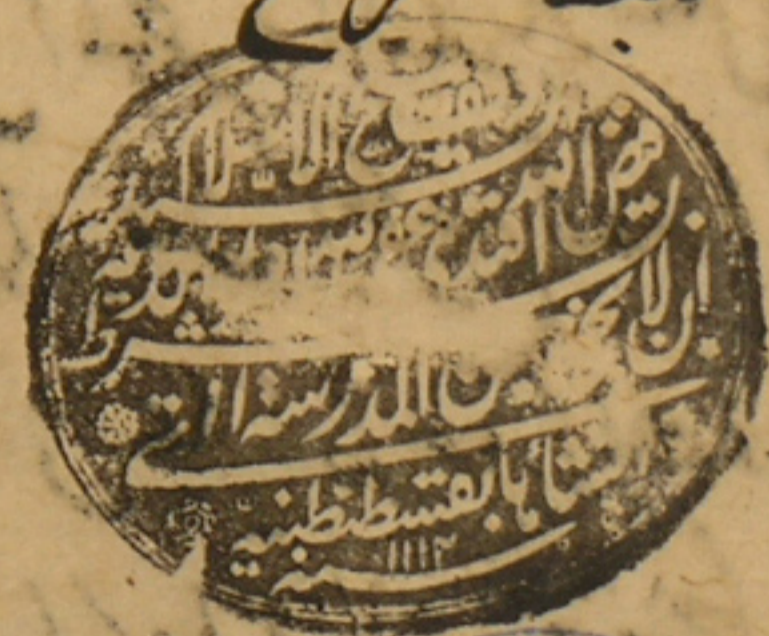 شيخ الاسلام
السيد فيض الله افندى غفر
ولوالديه
بشرط ان لا يخرج
من المدرسة التى
انشأها بقسطنطنية
سنه ١١١٢